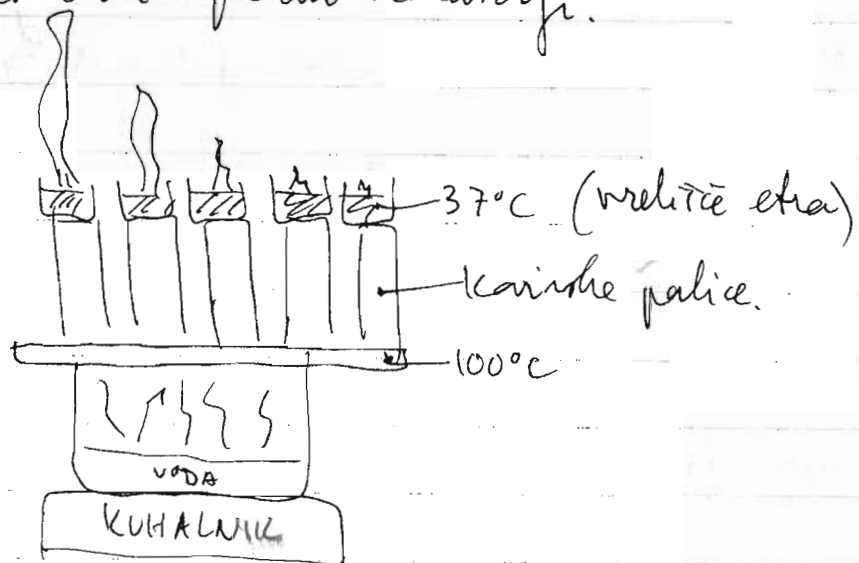 37°C (vrelišče etra)
Kovinske palice.
100°C
VODA
KUHALNIK